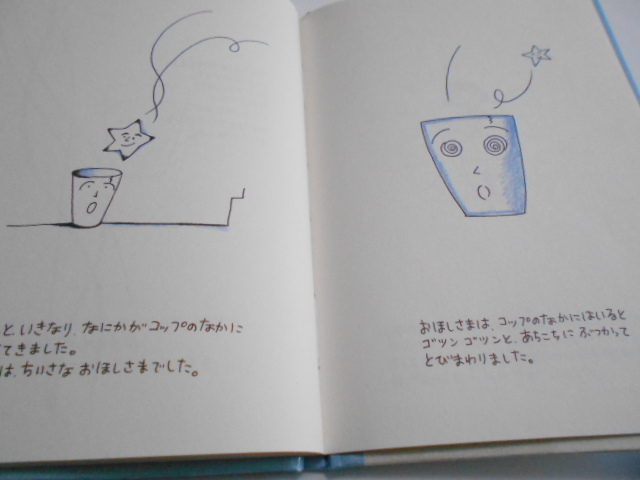 と いきなり、なにかが コップのなかに
てきました。
は、ちいさな おほしさまでした。
おほしさまは、コップのなかにはいると
ゴツン ゴツンと、あちこちに ぶつかって
とびまわりました。